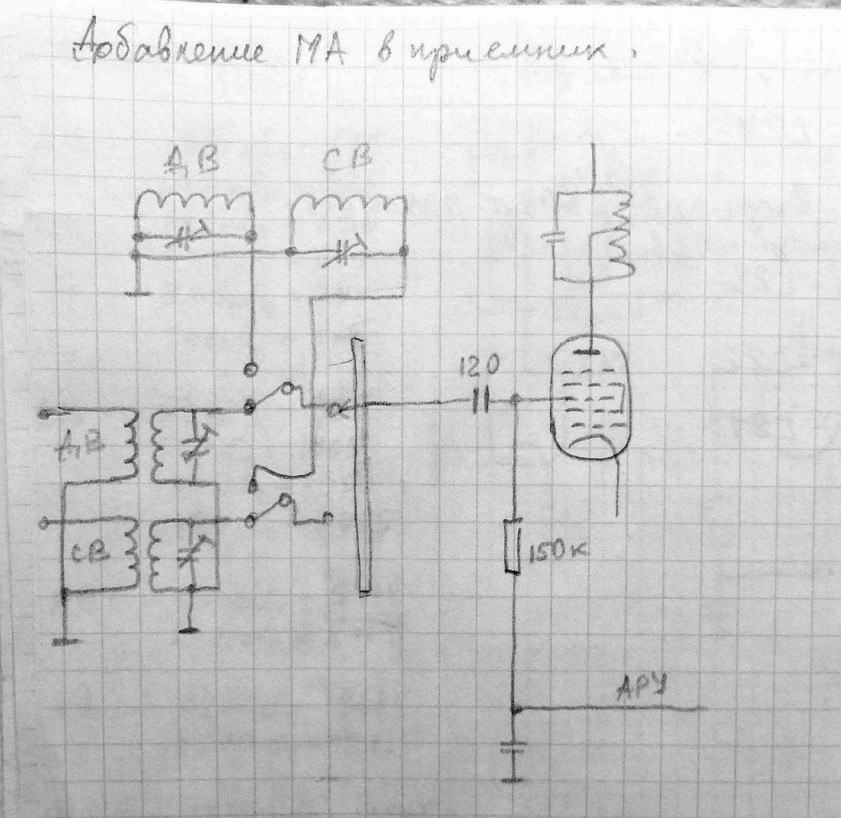 Добавление МА в приемник.
ДВ СВ
120
ДВ
СВ
150к
АРУ